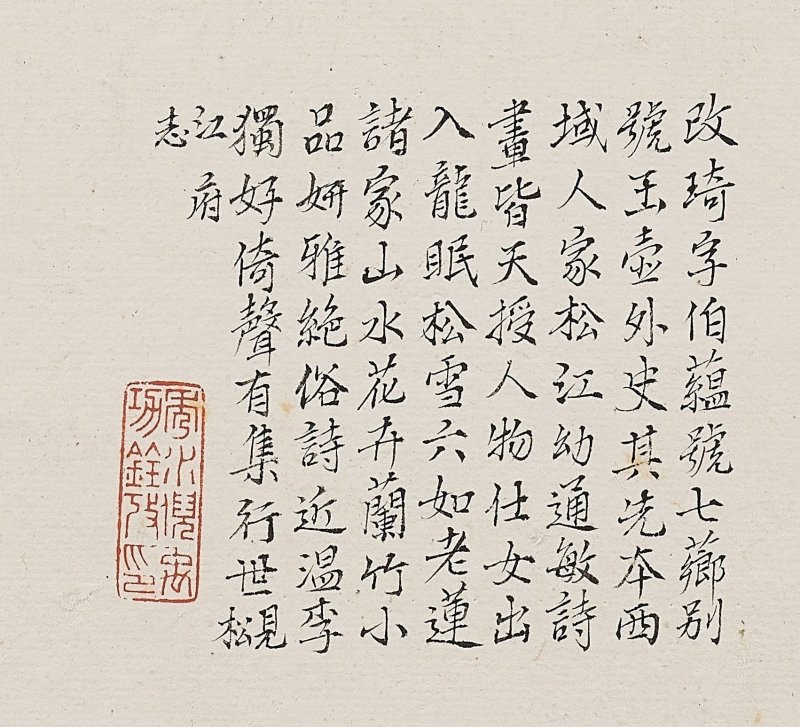 改琦字伯蘊號七薌别
號玉壺外史其先本西
域人家松江幼通敏詩
畫皆天授人物仕女出
入龍眠松雪六如老蓮
諸家山水花卉蘭竹小
品妍雅絶俗詩近温李
獨好倚聲有集行世見松
江府
志